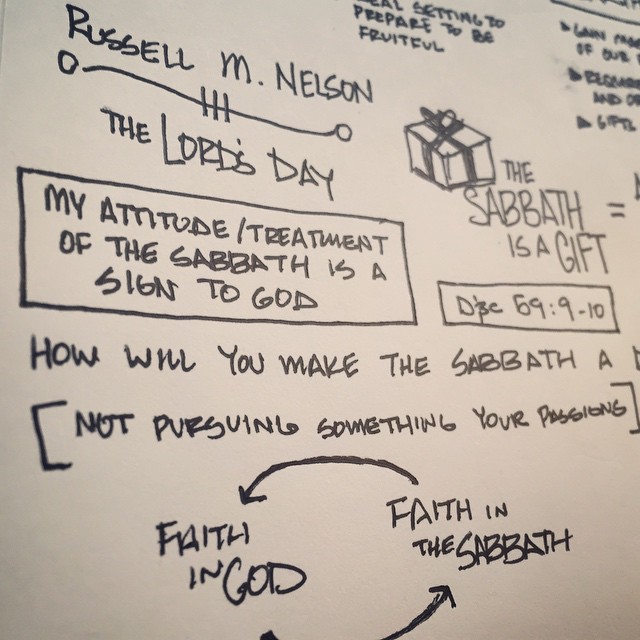 SETTING TO
PREPARE TO BE
FRUITFUL
GAIN
OF OUR
GIFTS
RUSSELL M. NELSON
THE LORD'S DAY
MY ATTITUDE/TREATMENT
OF THE SABBATH IS A
SIGN TO GOD
THE
SABBATH =
IS A GIFT
D&C 59:9-10
HOW WILL YOU MAKE THE SABBATH A
[NOT PURSUING SOMETHING YOUR PASSIONS]
FAITH
IN GOD
FAITH IN
THE SABBATH